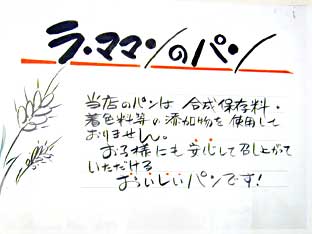 ラ・ママンのパン
当店のパンは 合成保存料・
着色料等の添加物を使用して
おりません。
お子様にも安心して召し上がって
いただける
おいしいパンです!